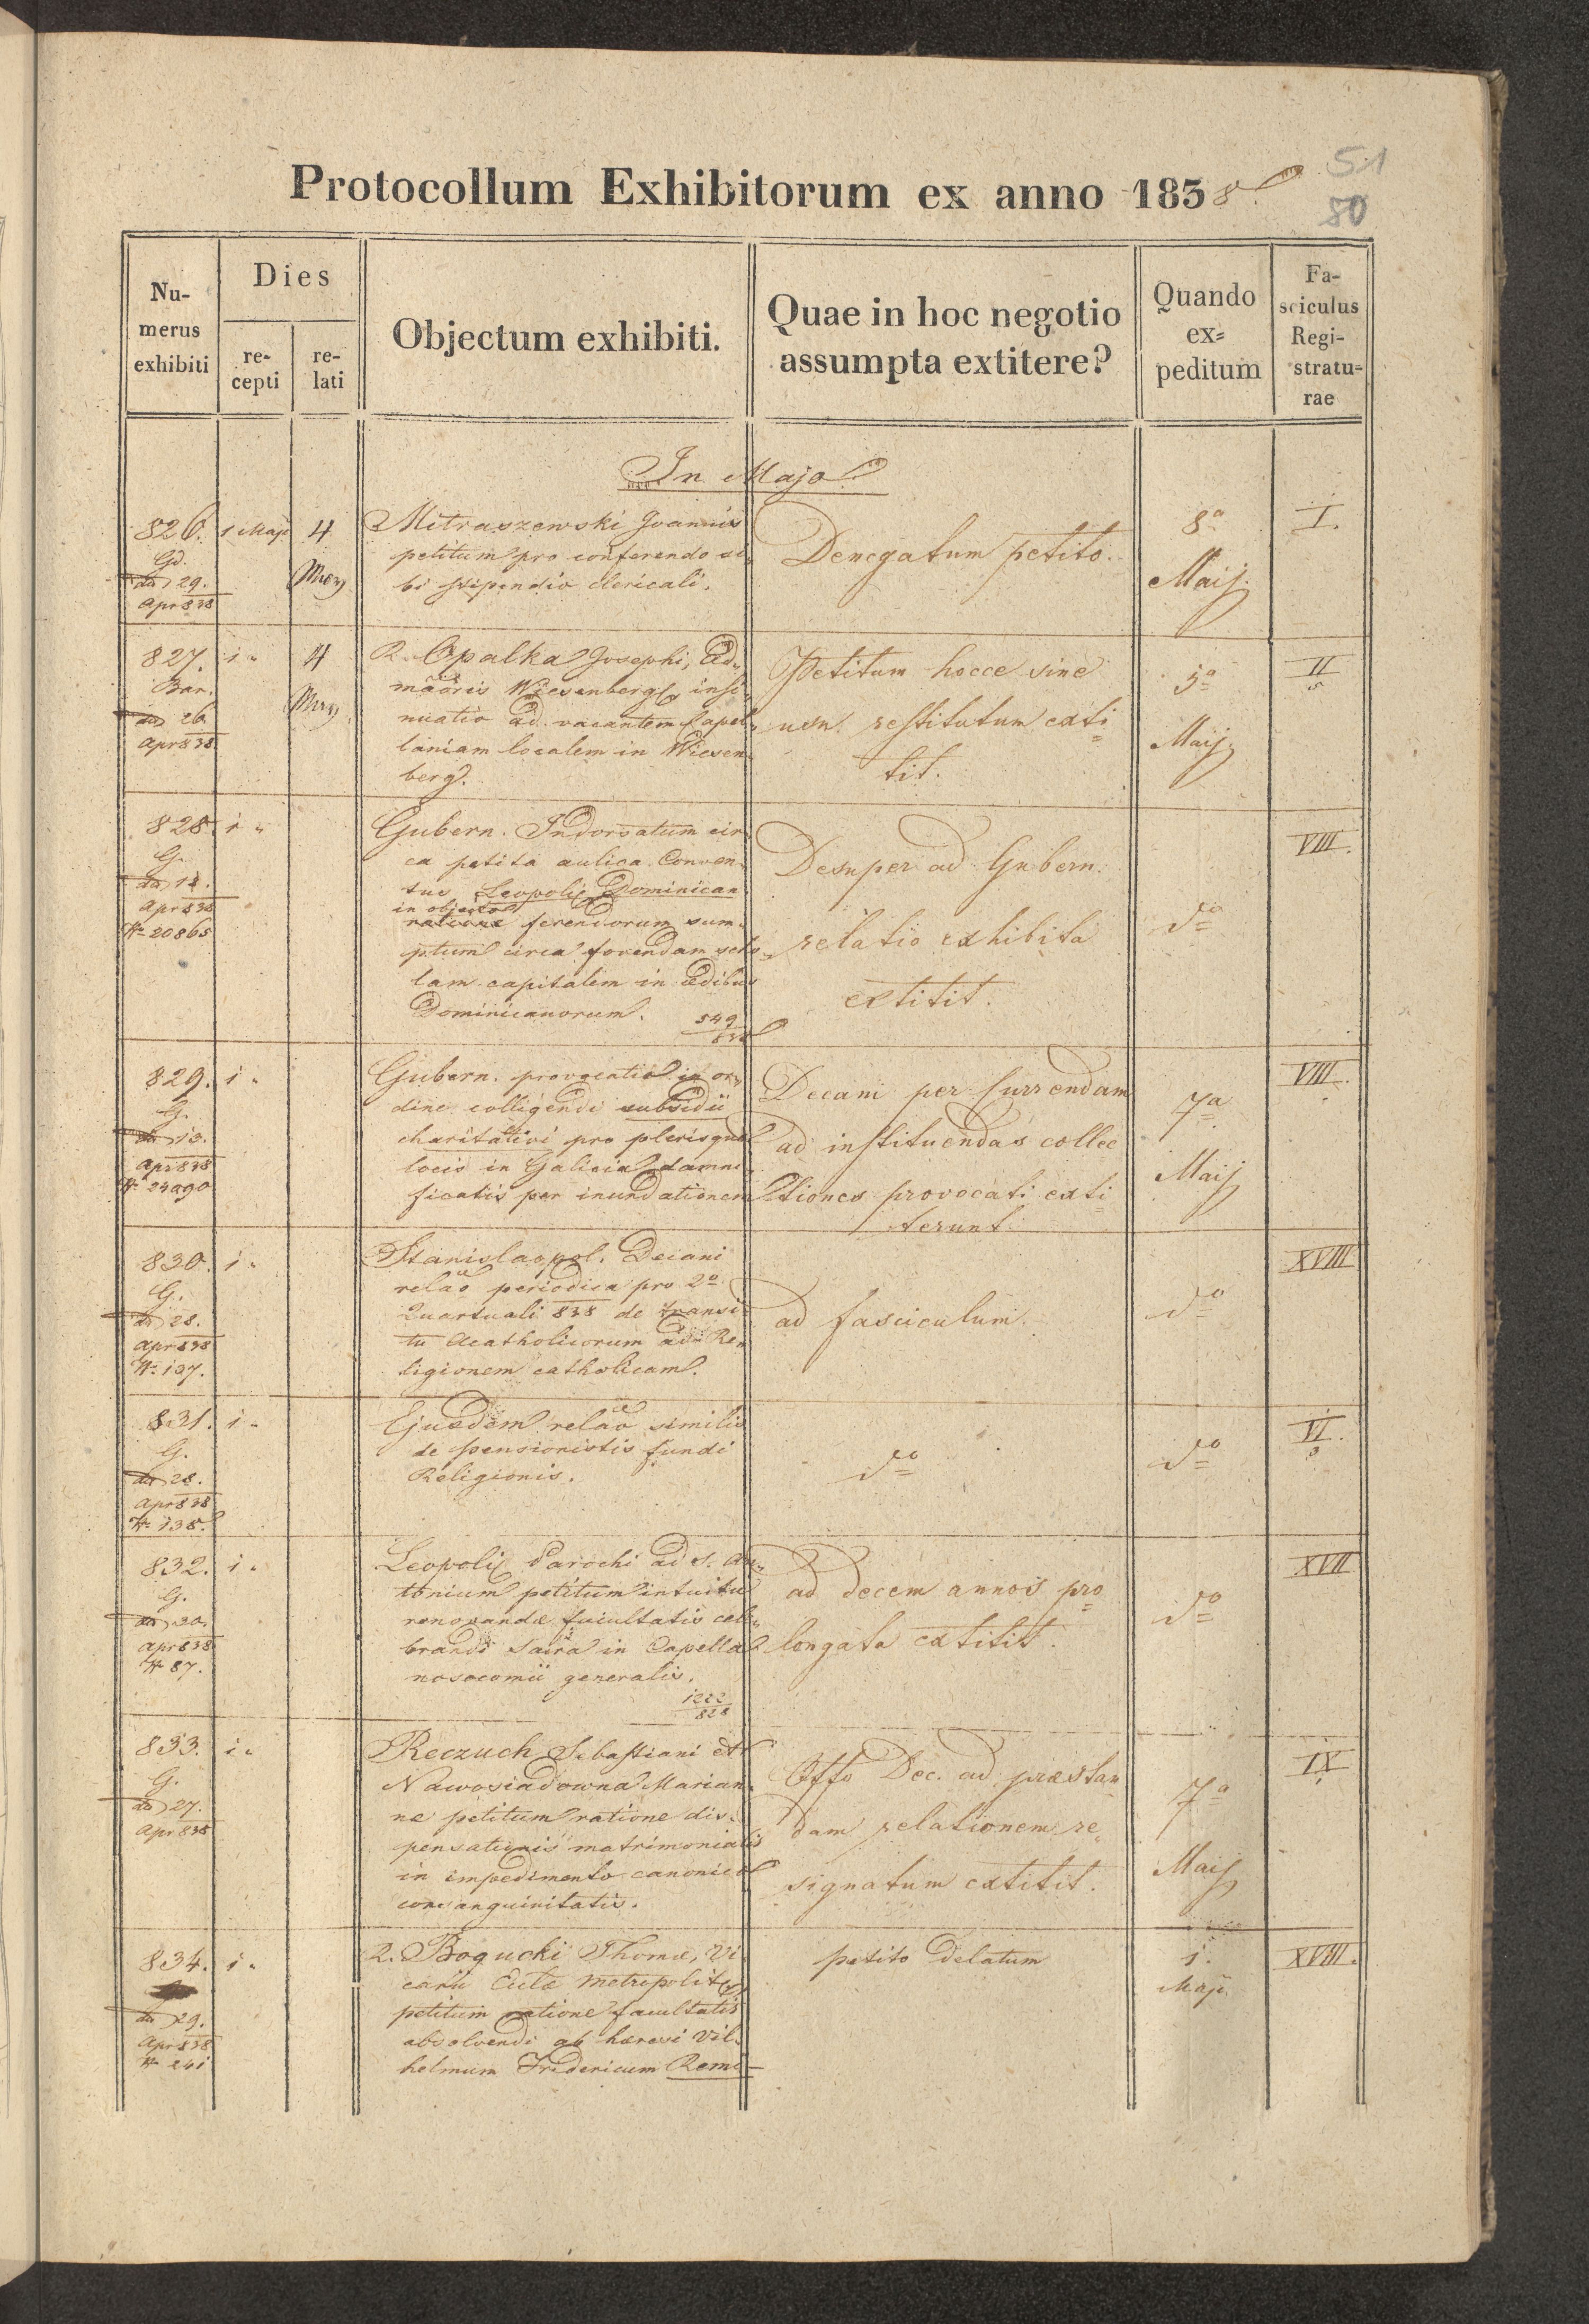 51
Protocollum Exhibitorum ex anno 1838.
80
Nu-
merus
exhibiti
Dies
re-
cepti
re-
lati
Objectum exhibiti.
Quae in hoc negotio
assumpta extitere?
Quando
ex=
peditum
Fa-
sciculus
Regi-
stratu=
rae
In Majo
826.
1 Maji
4
Gd.
dd 29.
Apr 838
Mitraszewski Joannis
petitum pro conferendo si-
bi stipendio clericali.
Denegatum petito.
8a
Maij.
I.
827.
1 "
4
dd 26
Apr 838
R. Opalka Josephi, Ad-
mäöris Wiesenberg. insi-
nuatio ad vacantem Capel-
laniam localem in Wiesen-
berg.
Petitum hocce sine
usu restitutum exti
tit.
5a
Maij.
II
828.
1 "
G.
dd
Apr 838
No 20865
Gubern. Indorsatum cir-
ca petita aulica Conven-
tus Leopoli Dominican
in objecto
ratione ferendorum sum-
ptum circa fovendam scho-
lam capitalem in ædibus
Dominicanorum.
549
838
Desuper ad Gubern.
relatio exhibita
extitit.
do
VIII.
829.
1 "
G.
dd 13.
Apr 838
No 24090
Gubern. provocatio in or-
dine colligendi subsidii
charitativi pro plerisque
locis in Galicia damni-
ficatis per inundationem
Decani per Currendam
ad instituendas collec
tiones provocati exti
terunt.
7a
Maij
VIII.
830.
1 "
G.
dd 28.
Apr 838
No 137.
Stanislaopol. Decani
relaö periodica pro 2o
Quartuali 838 de transi-
tu Acatholicorum ad Re-
ligionem catholicam.
ad fasciculum.
do
XVIII
831.
1 "
G.
dd 28.
Apr 838
No 138.
Ejusdem relaö similis
de pensionistis fundi
Religionis.
do
do
VI.
832.
1 "
G.
dd 30.
Apr 838
No 87.
Leopoli Parochi ad S. An-
tonium petitum intuitu
renovandæ facultatis cele-
brandi Sacra in Capella
nosocomii generalis.
1222
828
ad decem annos pro
longata extitit.
do
XVII
833.
1 "
G.
dd 27.
Apr 838
Reczuch Sebastiani et
Nawosiadowna Marian-
næ petitum ratione dis-
pensationis matrimonialis
in impedimento canonico
consanguinitatis.
Offo Dec. ad præstan
dam relationem re
signatum extitit.
7a
Maij
IX
834.
1 "
dd 29.
Apr 838
No 241
R. Bogucki Thomæ, Vi-
carii Eccl&aelig; Metropolit
petitum ratione facultatis
absolvendi ab hæresi Vil-
helmum Fridericum Remi-
petito delatum
1.
Maji
XVIII.